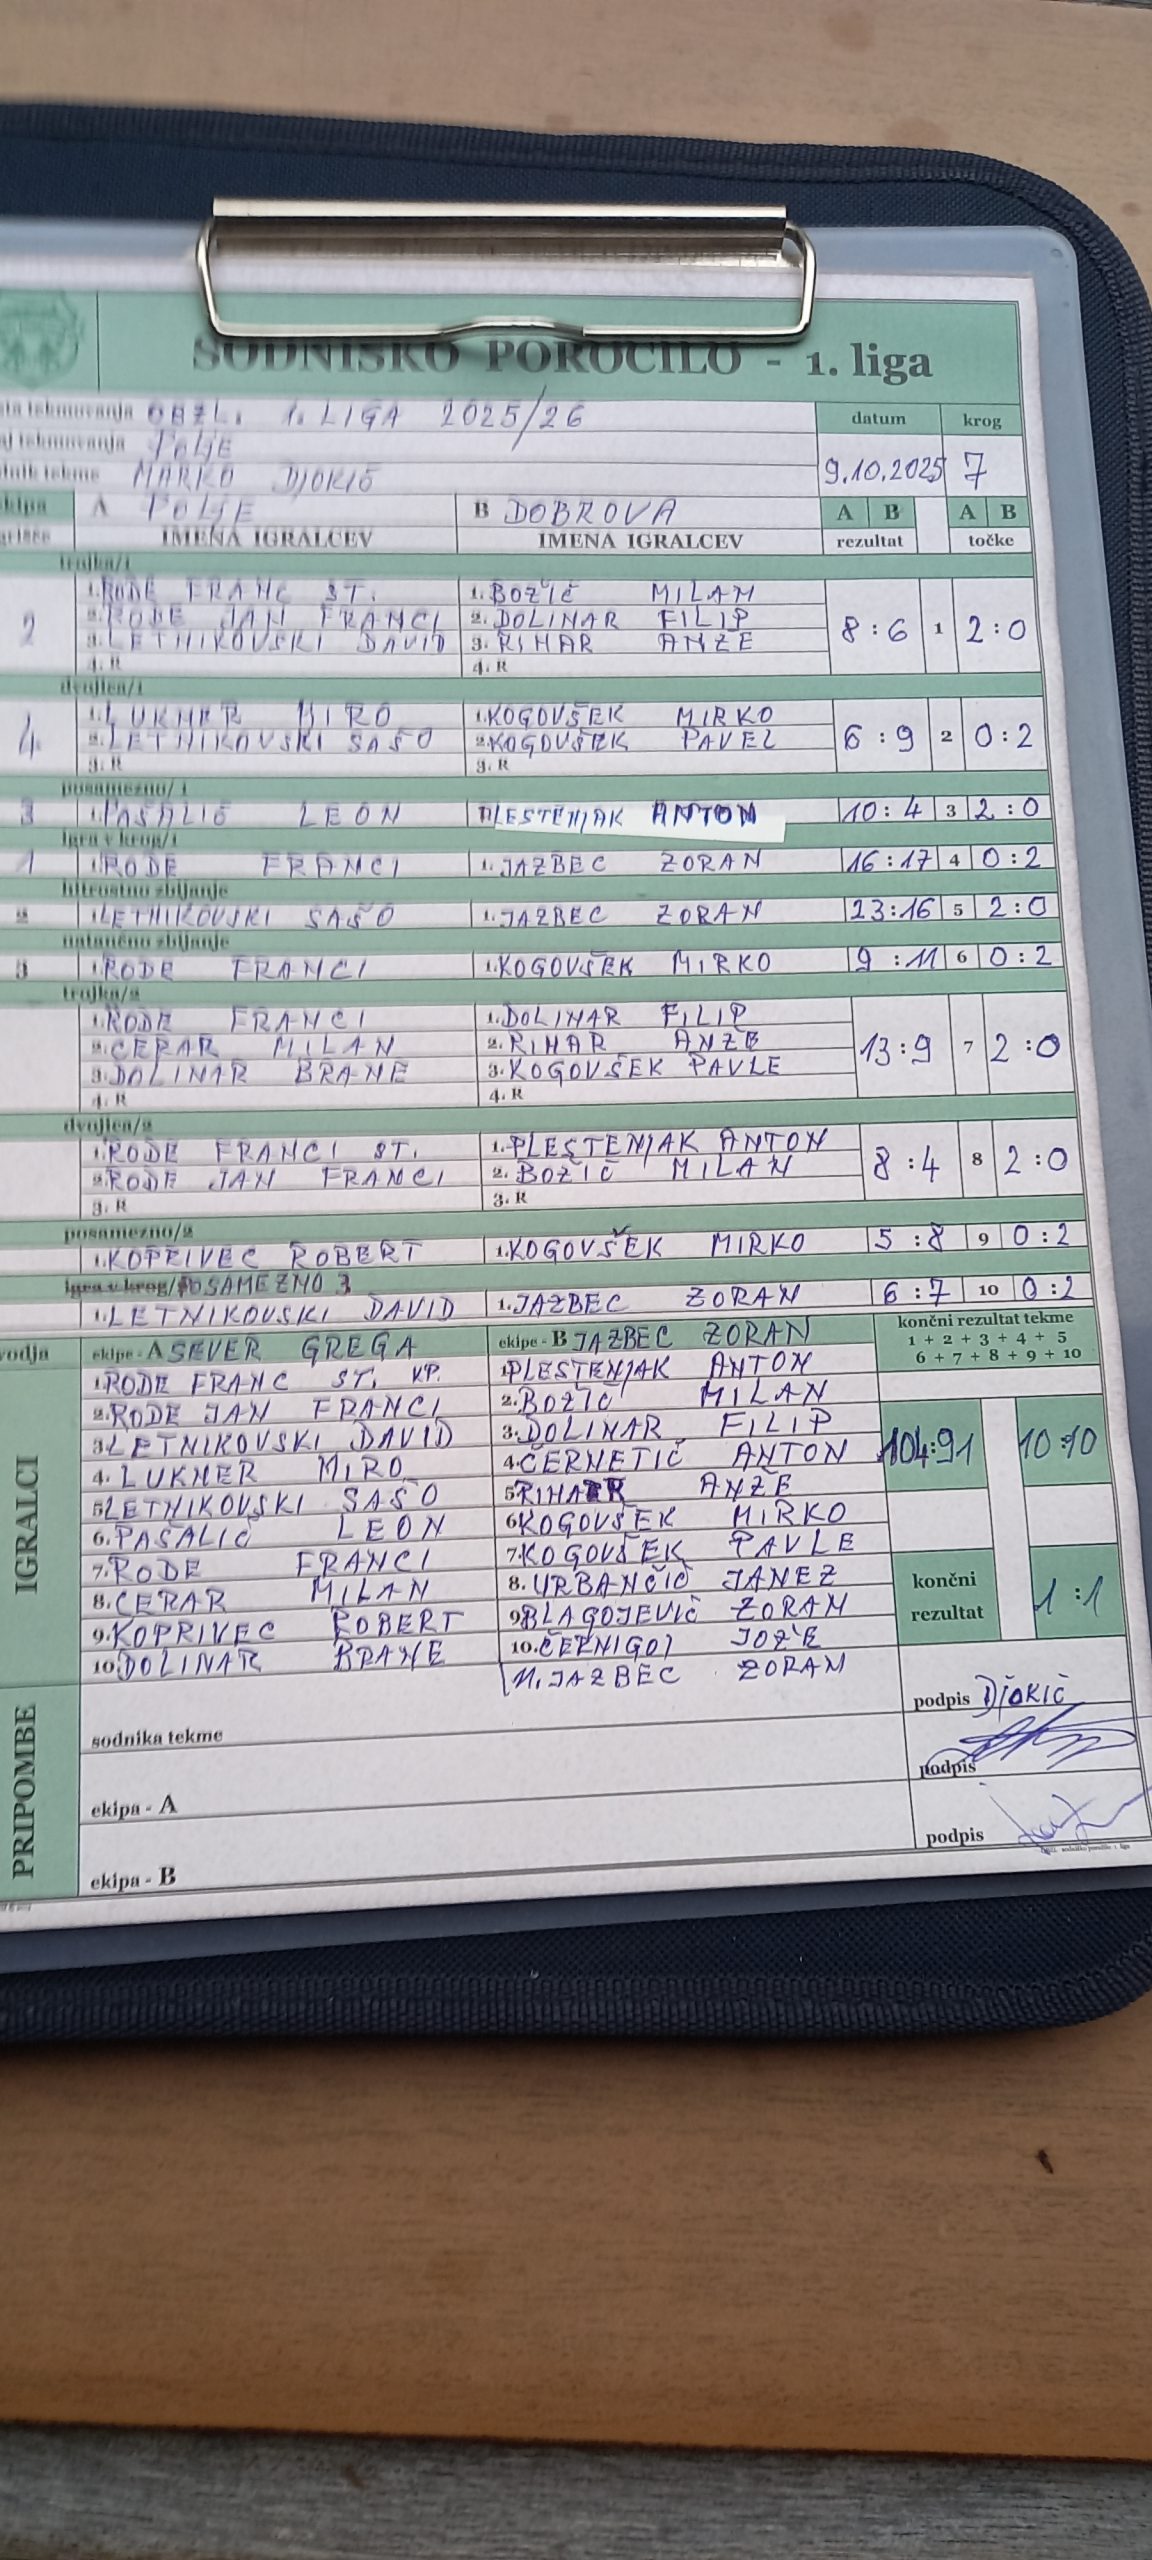 SODNIŠKO POROČILO - 1. liga
tekmovanja OBZL. 1. LIGA 2025/26 datum krog
tekmovanja POLJE
tekme MARKO DJOKIČ 9.10.2025 7
ekipa A POLJE B DOBROVA A B A B
IMENA IGRALCEV IMENA IGRALCEV rezultat točke
trojka/1
1. RODE FRANC ST. 1. BOŽIČ MILAN
2 2. RODE JAN FRANCI 2. DOLINAR FILIP 8 : 6 1 2 : 0
3. LETNIKOVSKI DAVID 3. RIHAR ANŽE
4. R 4. R
dvojica/1
1. LUKNER MIRO 1. KOGOVŠEK MIRKO
4 2. LETNIKOVSKI SAŠO 2. KOGOVŠEK PAVEL 6 : 9 2 0 : 2
3. R 3. R
posamezno/1
3 1. PAŠALIČ LEON PLESTENJAK ANTON 10 : 4 3 2 : 0
igra v krog/1
1 1. RODE FRANCI 1. JAZBEC ZORAN 16 : 17 4 0 : 2
hitrostno zbijanje
2 1. LETNIKOVSKI SAŠO 1. JAZBEC ZORAN 23 : 16 5 2 : 0
natančno zbijanje
3 1. RODE FRANCI 1. KOGOVŠEK MIRKO 9 : 11 6 0 : 2
trojka/2
1. RODE FRANCI 1. DOLINAR FILIP
2. CERAR MILAN 2. RIHAR ANŽE 13 : 9 7 2 : 0
3. DOLINAR BRANE 3. KOGOVŠEK PAVLE
4. R 4. R
dvojica/2
1. RODE FRANCI ST. 1. PLESTENJAK ANTON
2. RODE JAN FRANCI 2. BOŽIČ MILAN 8 : 4 8 2 : 0
3. R 3. R
posamezno/2
1. KOPRIVEC ROBERT 1. KOGOVŠEK MIRKO 5 : 8 9 0 : 2
igra v krog/ POSAMEZNO 3
1. LETNIKOVSKI DAVID 1. JAZBEC ZORAN 6 : 7 10 0 : 2
vodja ekipe - A SEVER GREGA ekipe - B JAZBEC ZORAN končni rezultat tekme
1 + 2 + 3 + 4 + 5
6 + 7 + 8 + 9 + 10
IGRALCI
1. RODE FRANC ST. KP. 1. PLESTENJAK ANTON
2. RODE JAN FRANCI 2. BOŽIČ MILAN
3. LETNIKOVSKI DAVID 3. DOLINAR FILIP
4. LUKNER MIRO 4. ČERNETIČ ANTON 104:91 10:10
5. LETNIKOVSKI SAŠO 5. RIHAR ANŽE
6. PAŠALIČ LEON 6. KOGOVŠEK MIRKO
7. RODE FRANCI 7. KOGOVŠEK PAVLE
8. CERAR MILAN 8. URBANČIČ JANEZ končni rezultat 1 : 1
9. KOPRIVEC ROBERT 9. BLAGOJEVIČ ZORAN
10. DOLINAR BRANE 10. ČERNIGOJ JOŽE
11. JAZBEC ZORAN
PRIPOMBE
sodnika tekme podpis Djokič
ekipa - A podpis
ekipa - B podpis